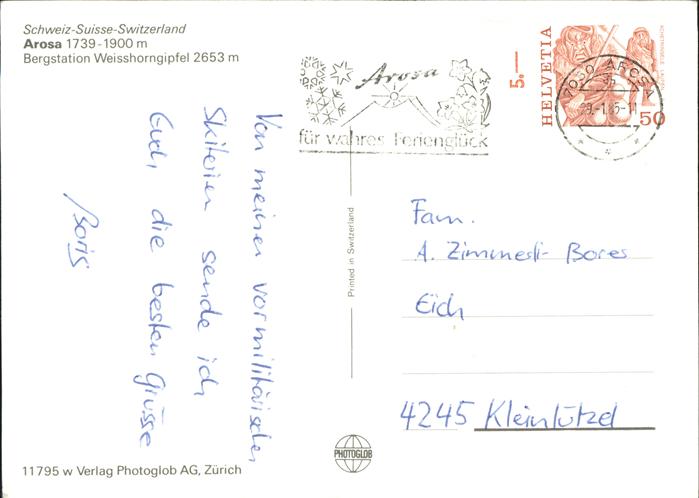 Schweiz-Suisse-Switzerland
Arosa 1739-1900 m
Bergstation Weisshorngipfel 2653 m
Von meinen vormilitärischen
Skiferien sende ich
Euch, die besten Grüsse
Boris
11795 w Verlag Photoglob AG, Zürich
Printed in Switzerland
PHOTOGLOB
Arosa
für wahres Ferienglück
5.—
HELVETIA
50
7050 AROSA
Fam.
A. Zimmerli-Borer
Eich
4245 Kleinlützel